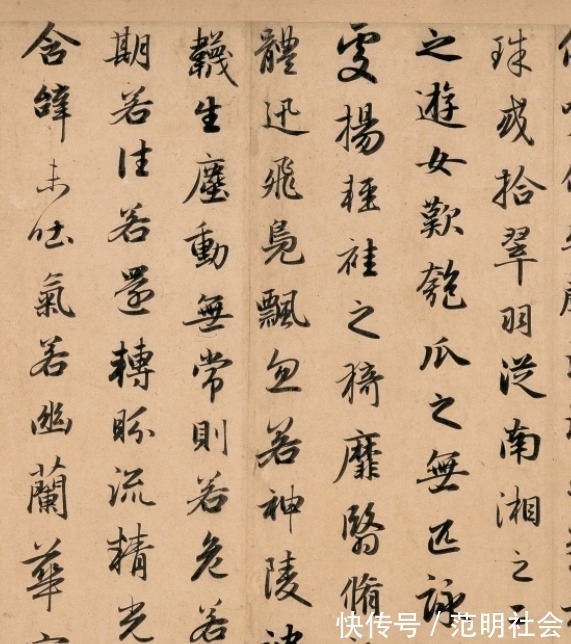 珠或拾翠羽從南湘之
之遊女歎匏瓜之無匹詠
處揚輕袿之猗靡翳脩
體迅飛鳧飄忽若神陵
韈生塵動無常則若危若
期若往若還轉眄流精光
含辭未吐氣若幽蘭華
快传号 / 范明社会